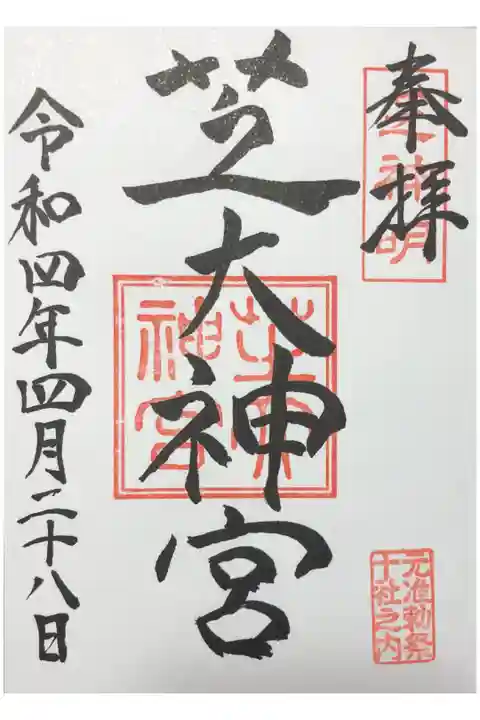 奉拝
芝神明
芝大神宮
芝大神宮
元准勅祭
十社之内
令和四年四月二十八日